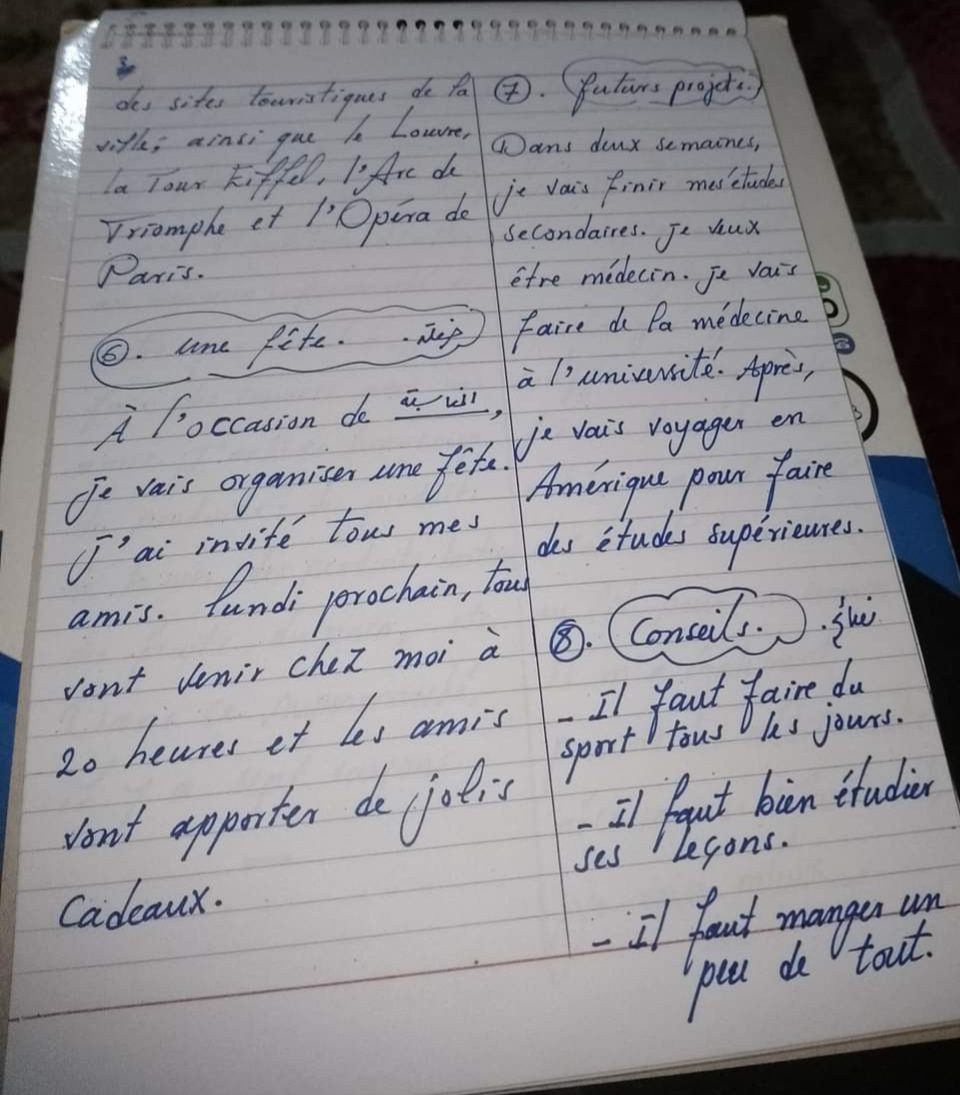 3
des sites touristiques de la
ville; ainsi que le Louvre,
la Tour Eiffel, l'Arc de
Triomphe et l'Opéra de
Paris.
⑥. une fête. . حفلة
À l'occasion de المناسبة,
je vais organiser une fête.
J'ai invité tous mes
amis. lundi prochain, tous
vont venir chez moi à
20 heures et les amis
vont apporter de jolis
cadeaux.
⑦. futurs projets.
Dans deux semaines,
je vais finir mes études
secondaires. Je veux
être médecin. Je vais
faire de la médecine
à l'université. Après,
je vais voyager en
Amérique pour faire
des études supérieures.
⑧. Conseils. . نصائح
- Il faut faire du
sport tous les jours.
- Il faut bien étudier
ses leçons.
- Il faut manger un
peu de tout.